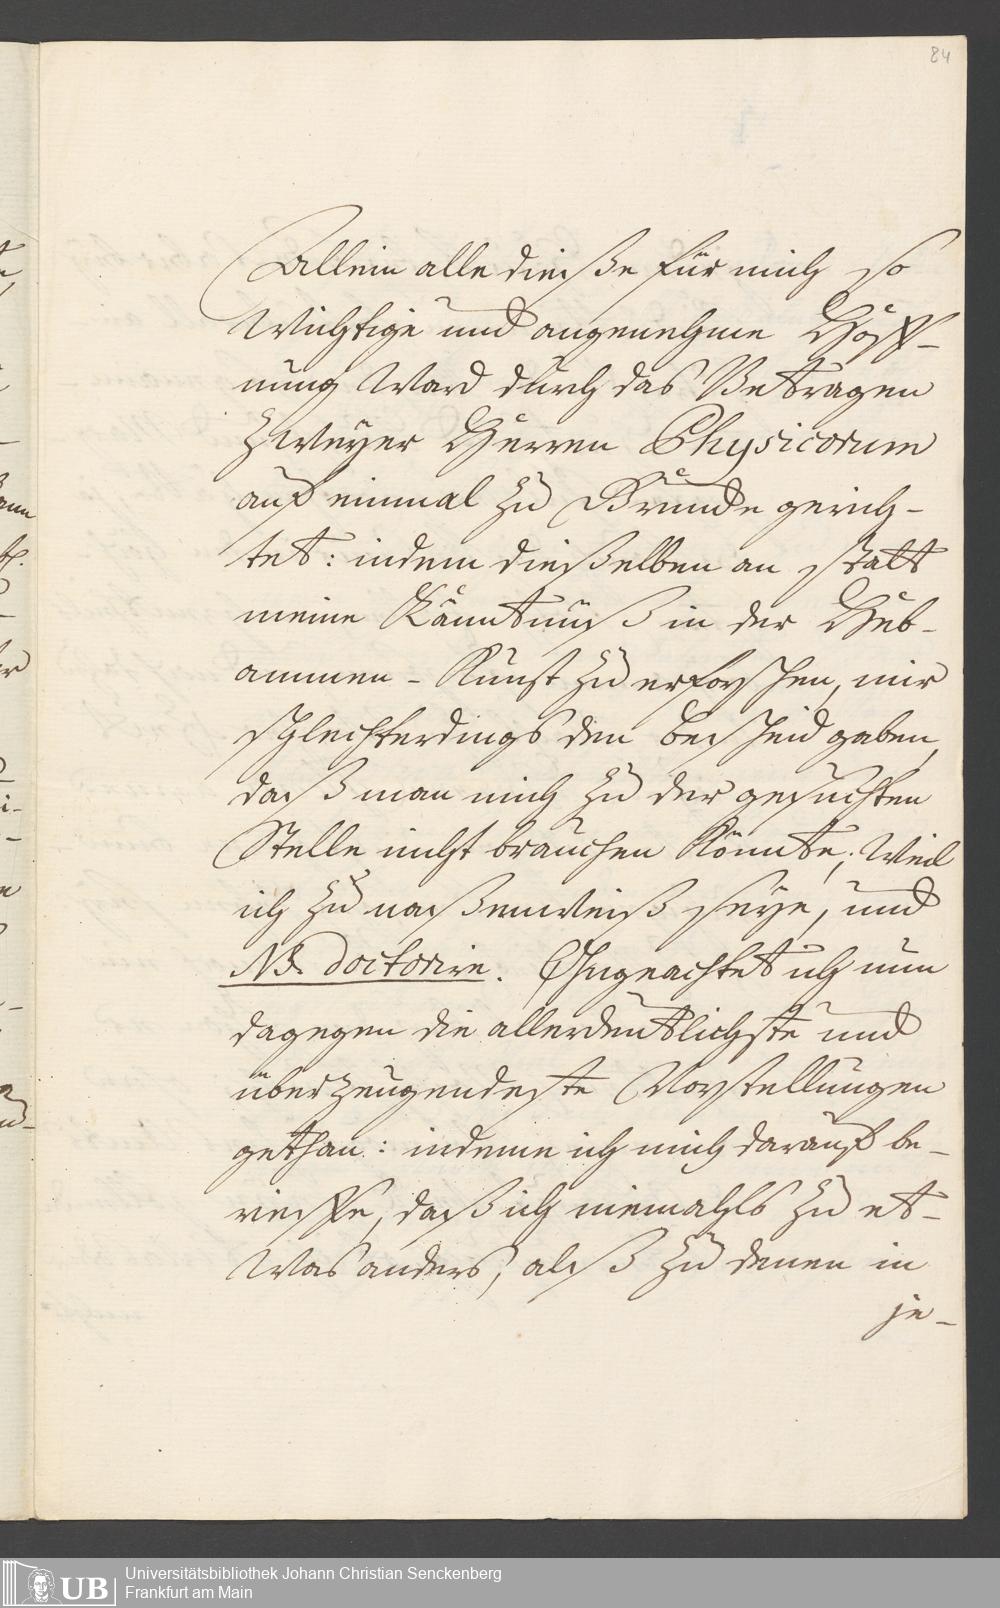 84
Allein alle dieße für mich so
Wichtige und angenehme Hoff-
nung Ward durch das Betragen
Zweyer Herren Physicorum
auf einmal zu Grunde gerich-
tet: indem dießelben an statt
meine Känntnüß in der Heb-
ammen-Kunst zu erforschen, mir
schlechterdings den bescheid gaben,
daß man mich zu der gesuchten
Stelle nicht brauchen könnte; Weil
ich zu naßenweiß seye, und
NB. doctorire. Ohngeachtet ich nun
dagegen die allerdeutlichste und
überzeugendeste Vorstellungen
gethan: indeme ich mich darauf be-
rieffe, daß ich niemahls zu et-
Was anders, alß zu denen in
je-
UB
Universitätsbibliothek Johann Christian Senckenberg
Frankfurt am Main